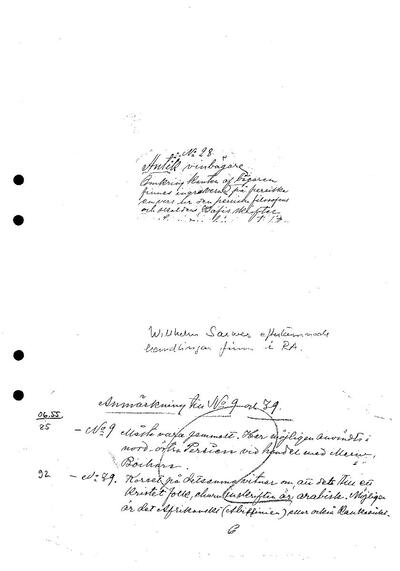 No 28.
Antik vinbägare
Omkring kanten af bägaren
finnes ingraverat på persiska
en vers ur den persiske filosofens
och skaldens Hafis skrifter
Wilhelm Sarwes efterlämnade
handlingar finns i RA.
Anmärkning till No 9 och 79.
06.55.
25 - No 9 Måste vara gammalt. Har möjligen användts i
nord-östra Persien vid handel med Merw,
Bochara.
92 - No 79. Korset på detsamma vittnar om, att dete till ett
kristet folk, churu inskriften är arabisk. Möjligen
är det Afrikanskt (Abissinien) eller också
6